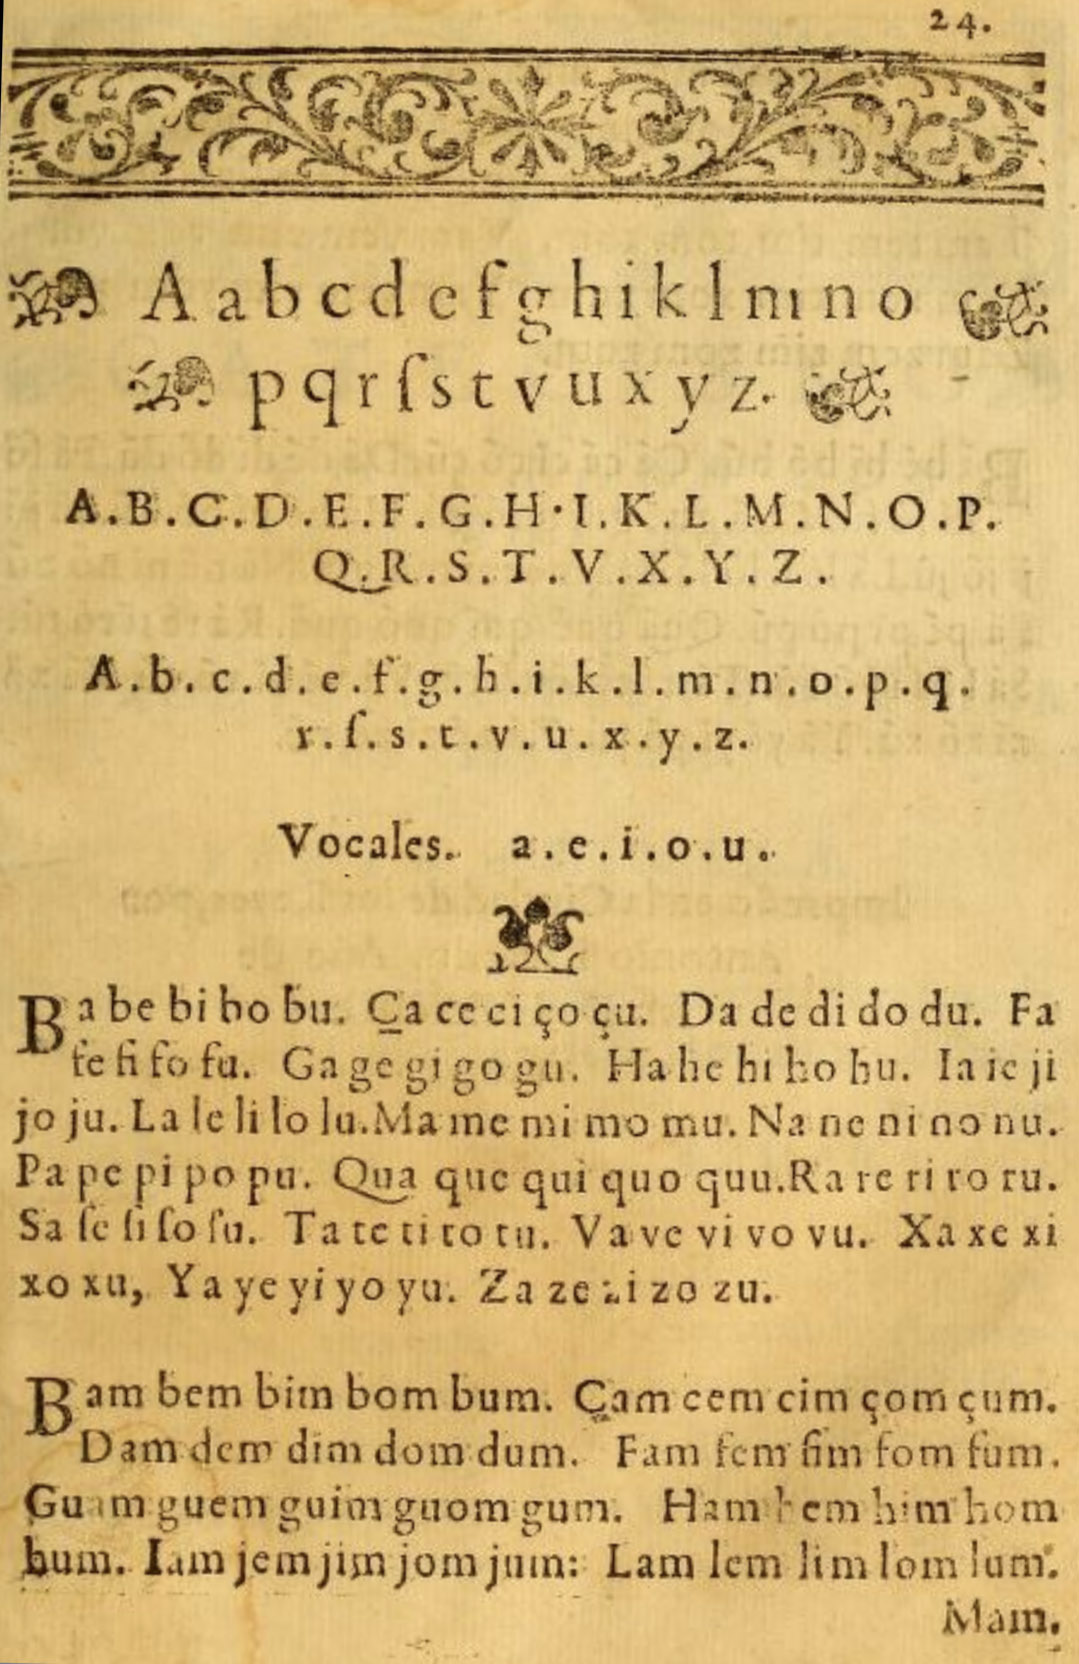 24.
A a b c d e f g h i k l m n o
p q r ſ s t v u x y z.
A.B.C.D.E.F.G.H.I.K.L.M.N.O.P.
Q.R.S.T.V.X.Y.Z.
A.b.c.d.e.f.g.h.i.k.l.m.n.o.p.q.
r.ſ.s.t.v.u.x.y.z.
Vocales. a.e.i.o.u.
Ba be bi bo bu. Ça ce ci ço çu. Da de di do du. Fa
fe fi fo fu. Ga ge gi go gu. Ha he hi ho hu. Ia ie ji
jo ju. La le li lo lu. Ma me mi mo mu. Na ne ni no nu.
Pa pe pi po pu. Qua que qui quo quu. Ra re ri ro ru.
Sa ſe ſi ſo ſu. Ta te ti to tu. Va ve vi vo vu. Xa xe xi
xo xu, Ya ye yi yo yu. Za ze zi zo zu.
Bam bem bim bom bum. Çam cem cim çom çum.
Dam dem dim dom dum. Fam fem fim fom fum.
Guam guem guim guom gum. Ham hem him hom
hum. Iam jem jim jom jum: Lam lem lim lom lum.
Mam.